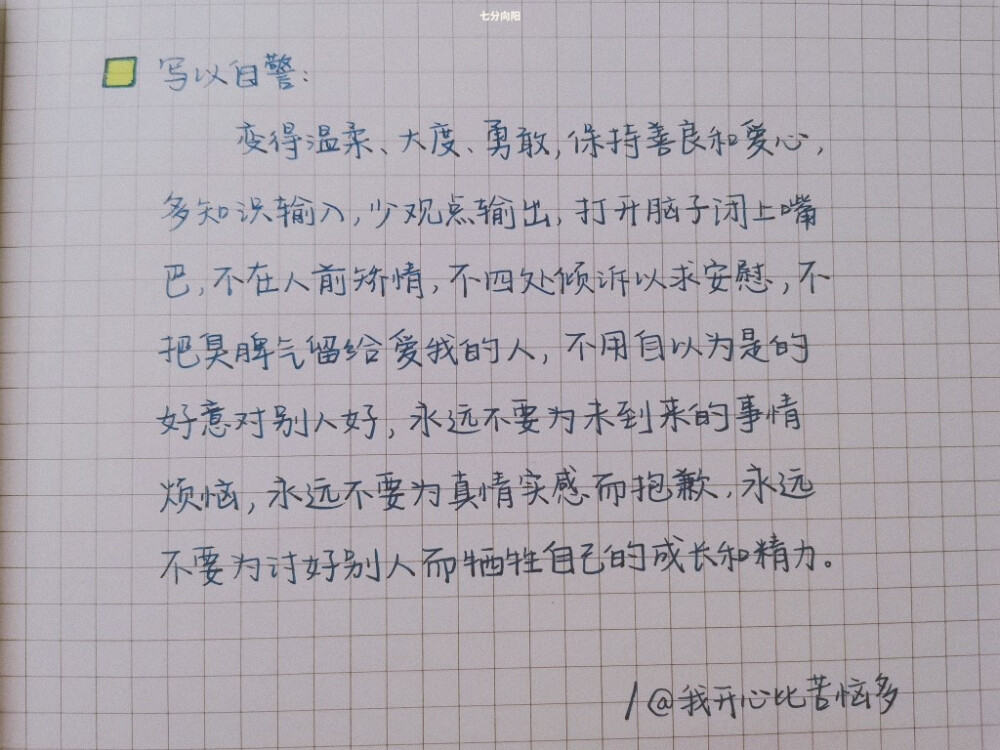 七分向阳
写以自警:
变得温柔、大度、勇敢,保持善良和爱心,
多知识输入,少观点输出,打开脑子闭上嘴
巴,不在人前矫情,不四处倾诉以求安慰,不
把臭脾气留给爱我的人,不用自以为是的
好意对别人好,永远不要为未到来的事情
烦恼,永远不要为真情实感而抱歉,永远
不要为讨好别人而牺牲自己的成长和精力。
/@我开心比苦恼多